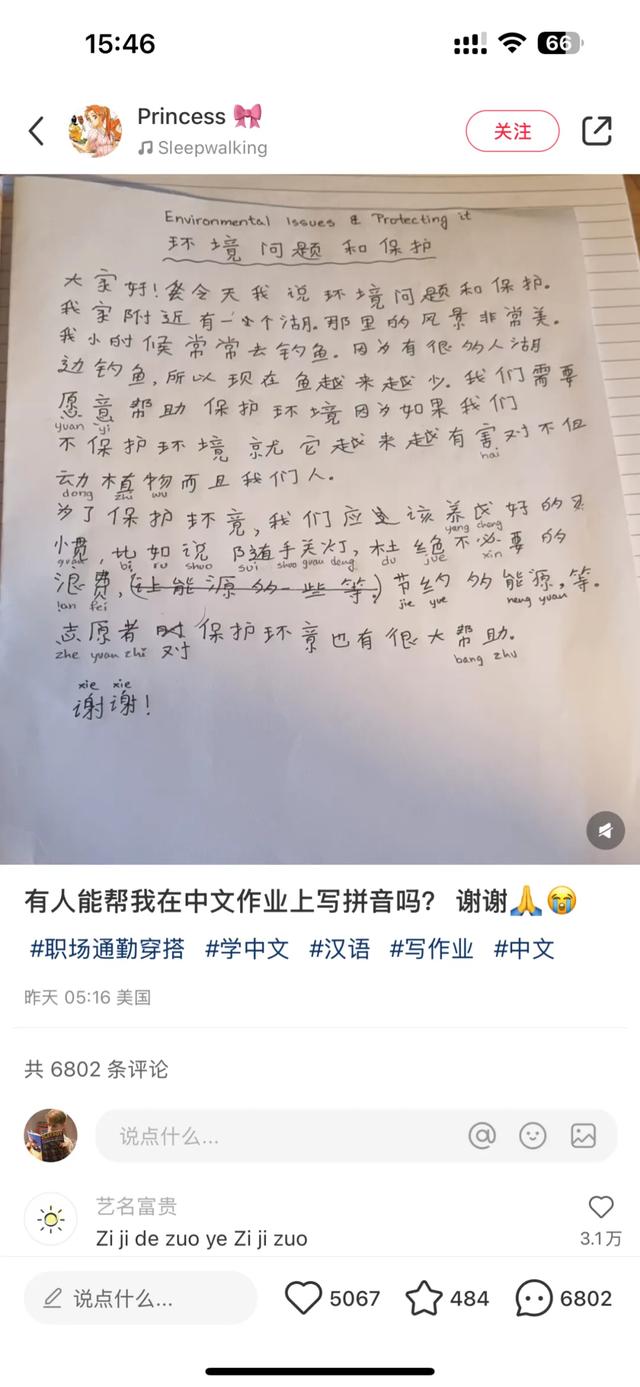 15:46
66
Princess
Sleepwalking
关注
Environmental Issues & Protecting it
环境问题和保护
大家好！今天我说环境问题和保护。
我家附近有一个湖。那里的风景非常美。
我小时候常常去钓鱼。因为有很多人湖
边钓鱼，所以现在鱼越来越少。我们需要
愿意帮助保护环境因为如果我们
yuan yi
不保护环境就它越来越有害对不但
hai
动植物而且我们人。
dong zhi wu
为了保护环境，我们应该养成好的习
yang cheng
惯，比如说随手关灯，杜绝不必要的
guan bi ru shuo sui shou guan deng du jue xin
浪费，(让能源的一些等。)节约的能源，等。
lan fei jie yue neng yuan
志愿者对保护环境也有很大帮助。
zhe yuan zhi bang zhu
xie xie
谢谢！
有人能帮我在中文作业上写拼音吗？ 谢谢🙏😭
#职场通勤穿搭 #学中文 #汉语 #写作业 #中文
昨天 05:16 美国
共 6802 条评论
说点什么...
艺名富贵
Zi ji de zuo ye Zi ji zuo
3.1万
说点什么...
5067
484
6802